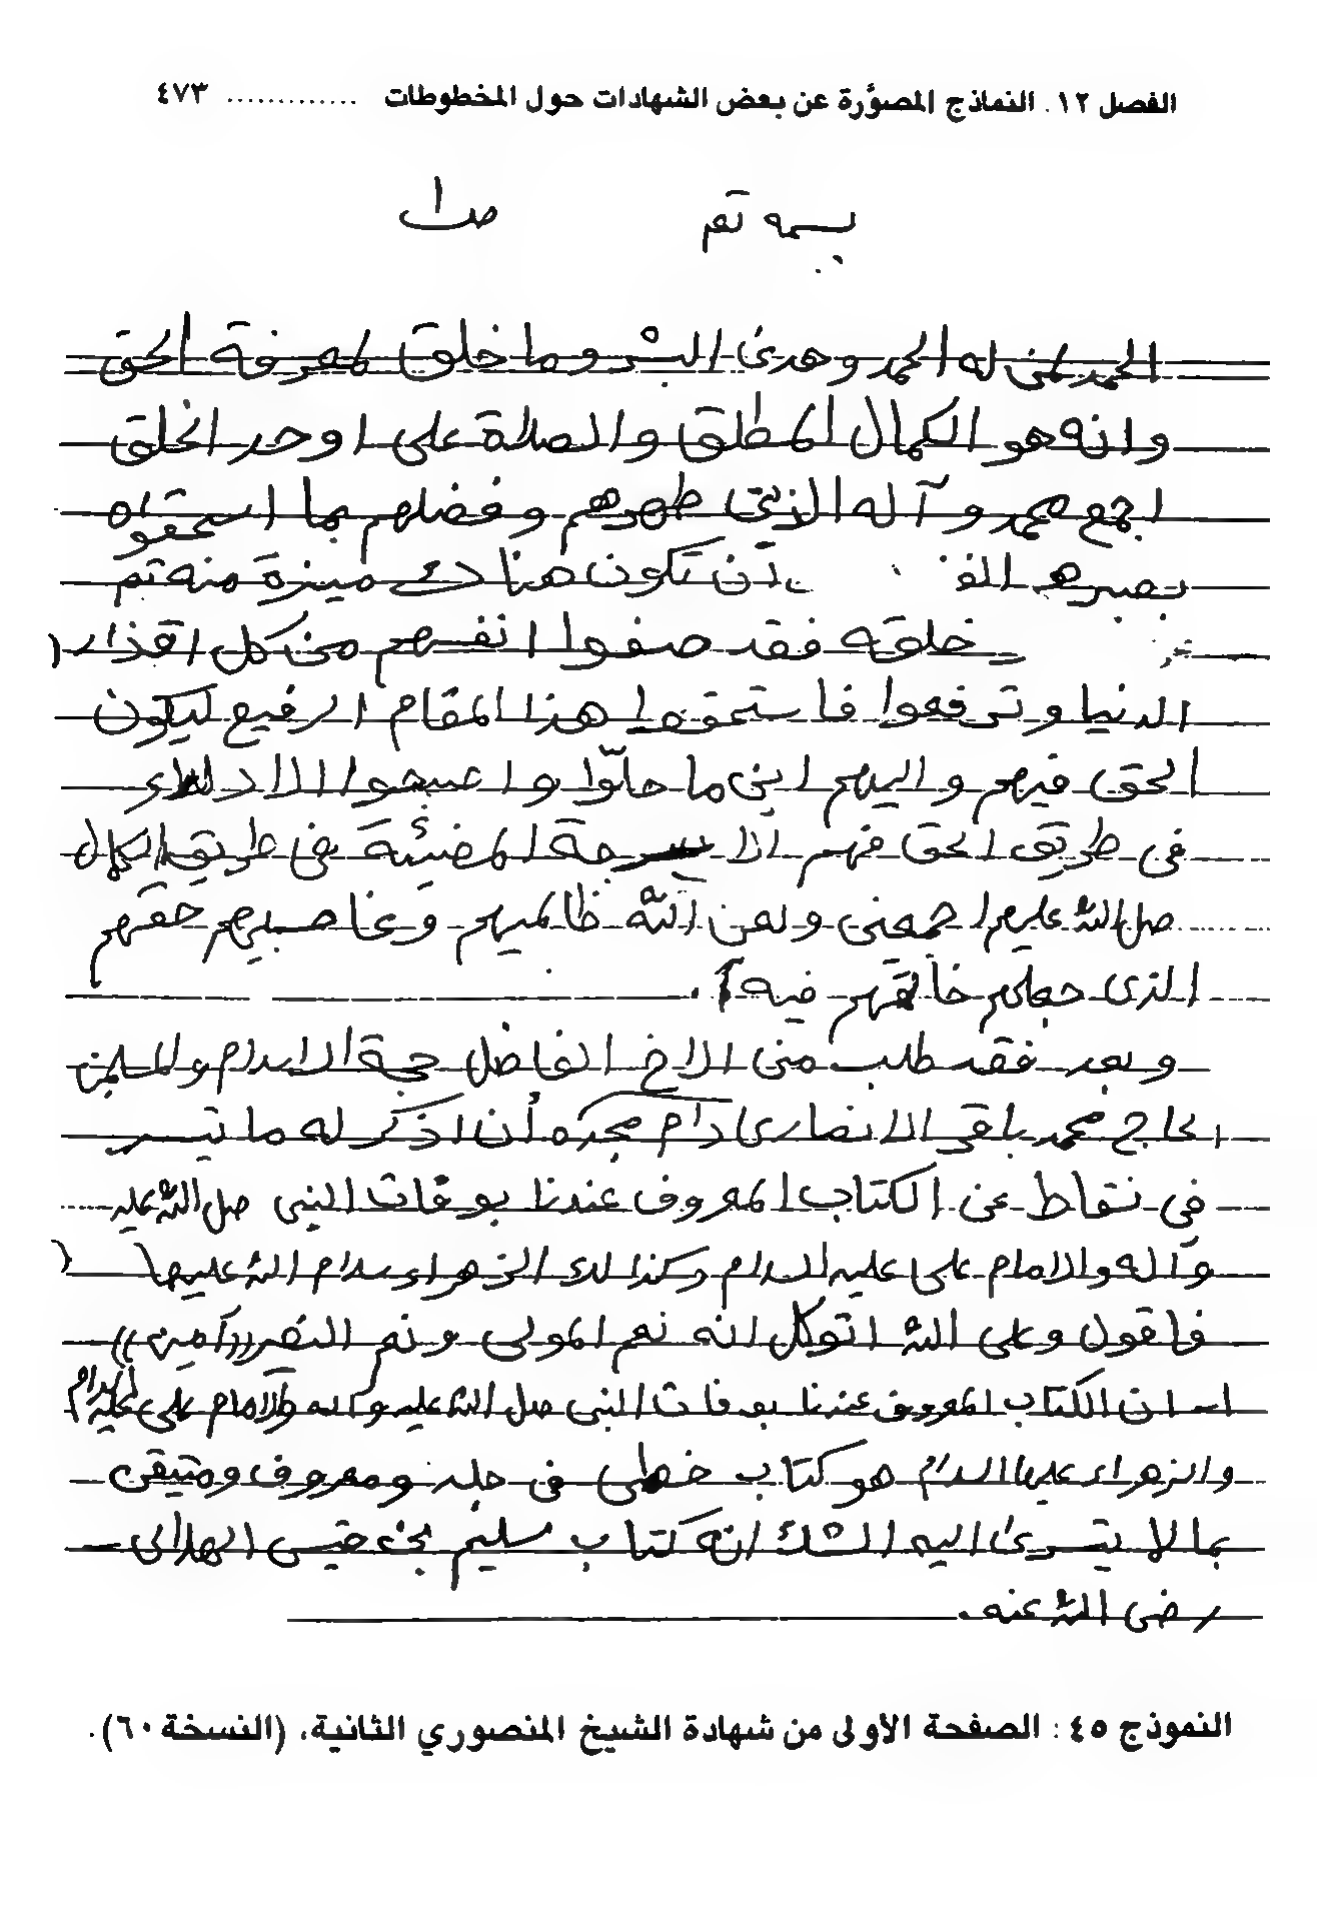 الفصل ١٢. النماذج المصوَّرة عن بعض الشهادات حول المخطوطات ............. ٤٧٣
بسمه تعم ص ١
الحمد لمن له الحمد وهدىٰ البشر وما خلق لمعرفة الحق
وانه هو الكمال المطلق والصلاة على اوحد الخلق
اجمع محمد وآله الذين طهرهم وفضلهم بما استحقوه
أن تكون هناك ميزة منه تعم
خلقه فقد صفوا انفسهم من كل اقذار
الدنيا وترفعوا فاستحقوا هذا المقام الرفيع ليكون
الحق فيهم واليهم اين ما حلّوا واصبحوا الادلاء
في طريق الحق فهم المضيئة في طريق الكمال
صل الله عليهم اجمعين ولعن الله ظالميهم وغاصبيهم حقهم
الذي جعلهم خالقهم فيه.
وبعد فقد طلب مني الاخ الفاضل حجة الاسلام والمسلمين
الحاج محمد باقر الانصاري دام مجده أن اذكر له ما تيسر
في نقاط عن الكتاب المعروف عندنا بوفات النبي صل الله عليه
وآله والامام علي عليه السلام وكذالك الزهراء سلام الله عليها
فاقول وعلى الله اتوكل انه نعم المولى ونعم النصير ((آمين))
١ـ ان الكتاب المعروف عندنا بوفات النبي صل الله عليه وآله والامام علي عليه السلام
والزهراء عليها السلام هو كتاب خطي في حله ومعروف ومتيقن
بما لا يتسرىٰ اليه الشك انه كتاب سليم بن قيس الهلالي
رضي الله عنه.
النموذج ٤٥ : الصفحة الأولى من شهادة الشيخ المنصوري الثانية، (النسخة ٦٠).